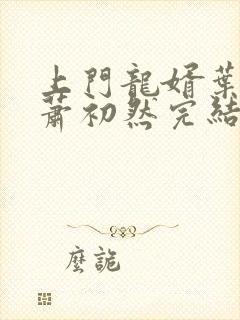 上門龍婿葉
蕭初然完結
麼詭